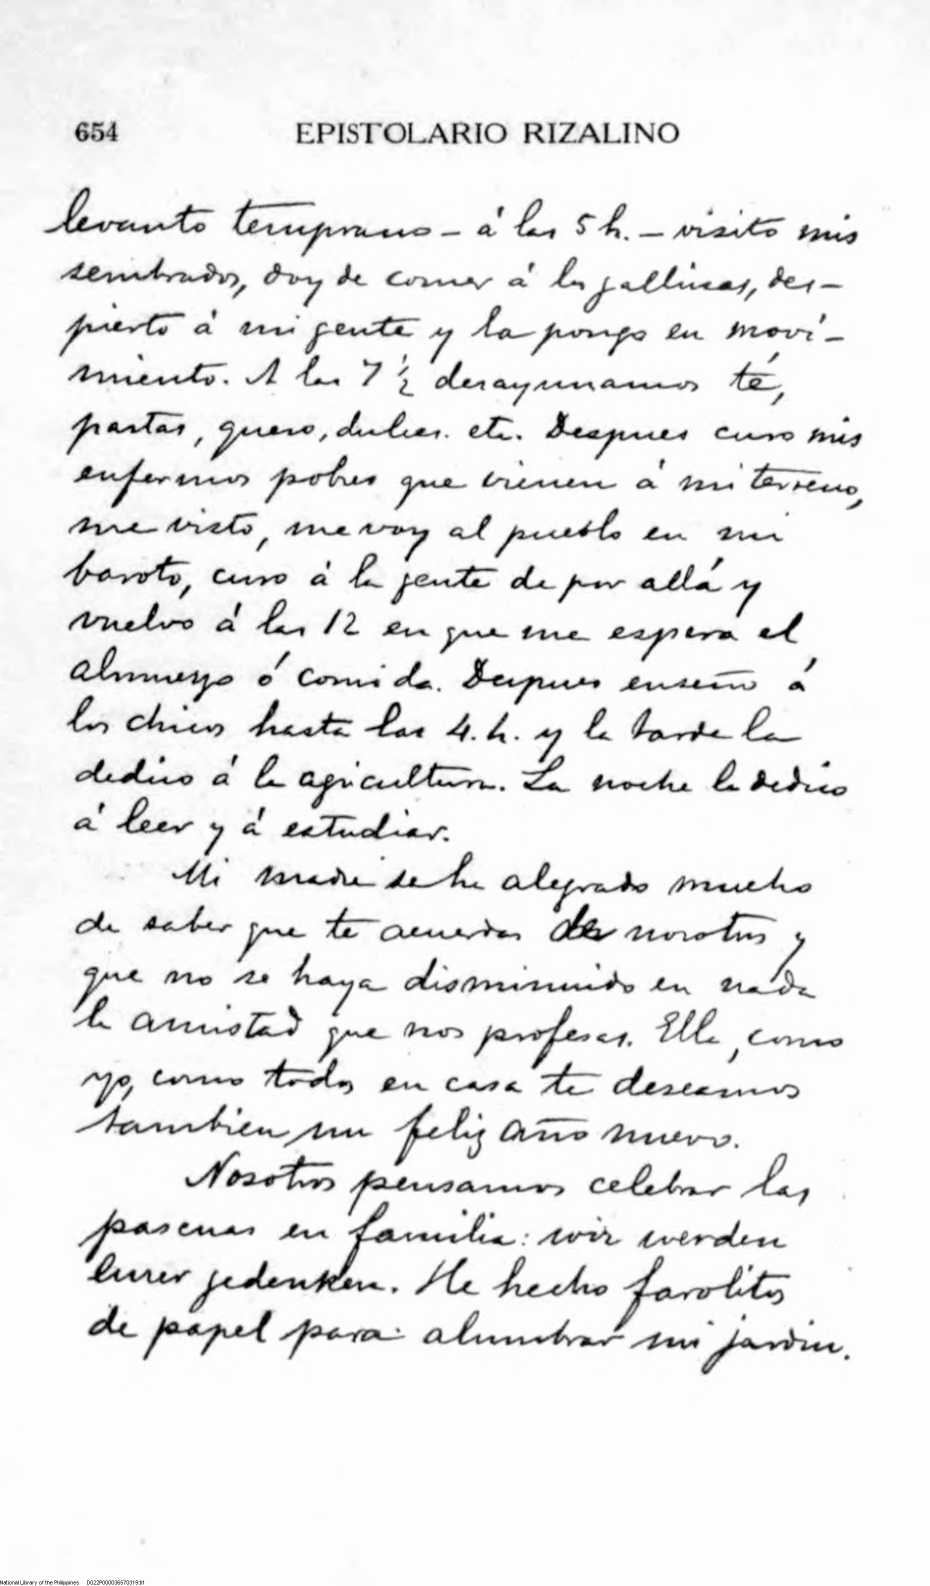 654 EPISTOLARIO RIZALINO
levanto temprano – á las 5 h. – visito mis
sembrados, doy de comer á las gallinas, des-
pierto á mi gente y la pongo en movi-
miento. A las 7 ½ desayunamos té,
pastas, queso, dulces. etc. Despues curo mis
enfermos pobres que vienen á mi terreno,
me visto, me voy al pueblo en mi
baroto, curo á la gente de por allá y
vuelvo á las 12 en que me espera el
almuerzo ó comida. Despues enseño á
los chicos hasta las 4. h. y la tarde la
dedico á la agricultura. La noche la dedico
á leer y á estudiar.
Mi madre se ha alegrado mucho
de saber que te acuerdas de nosotros y
que no se haya disminuido en nada
la amistad que nos profesas. Ella, como
yo, como todos en casa te deseamos
tambien un feliz año nuevo.
Nosotros pensamos celebrar las
pascuas en familia: wir werden
Eurer gedenken. He hecho farolitos
de papel para alumbrar mi jardin.
National Library of the Philippines